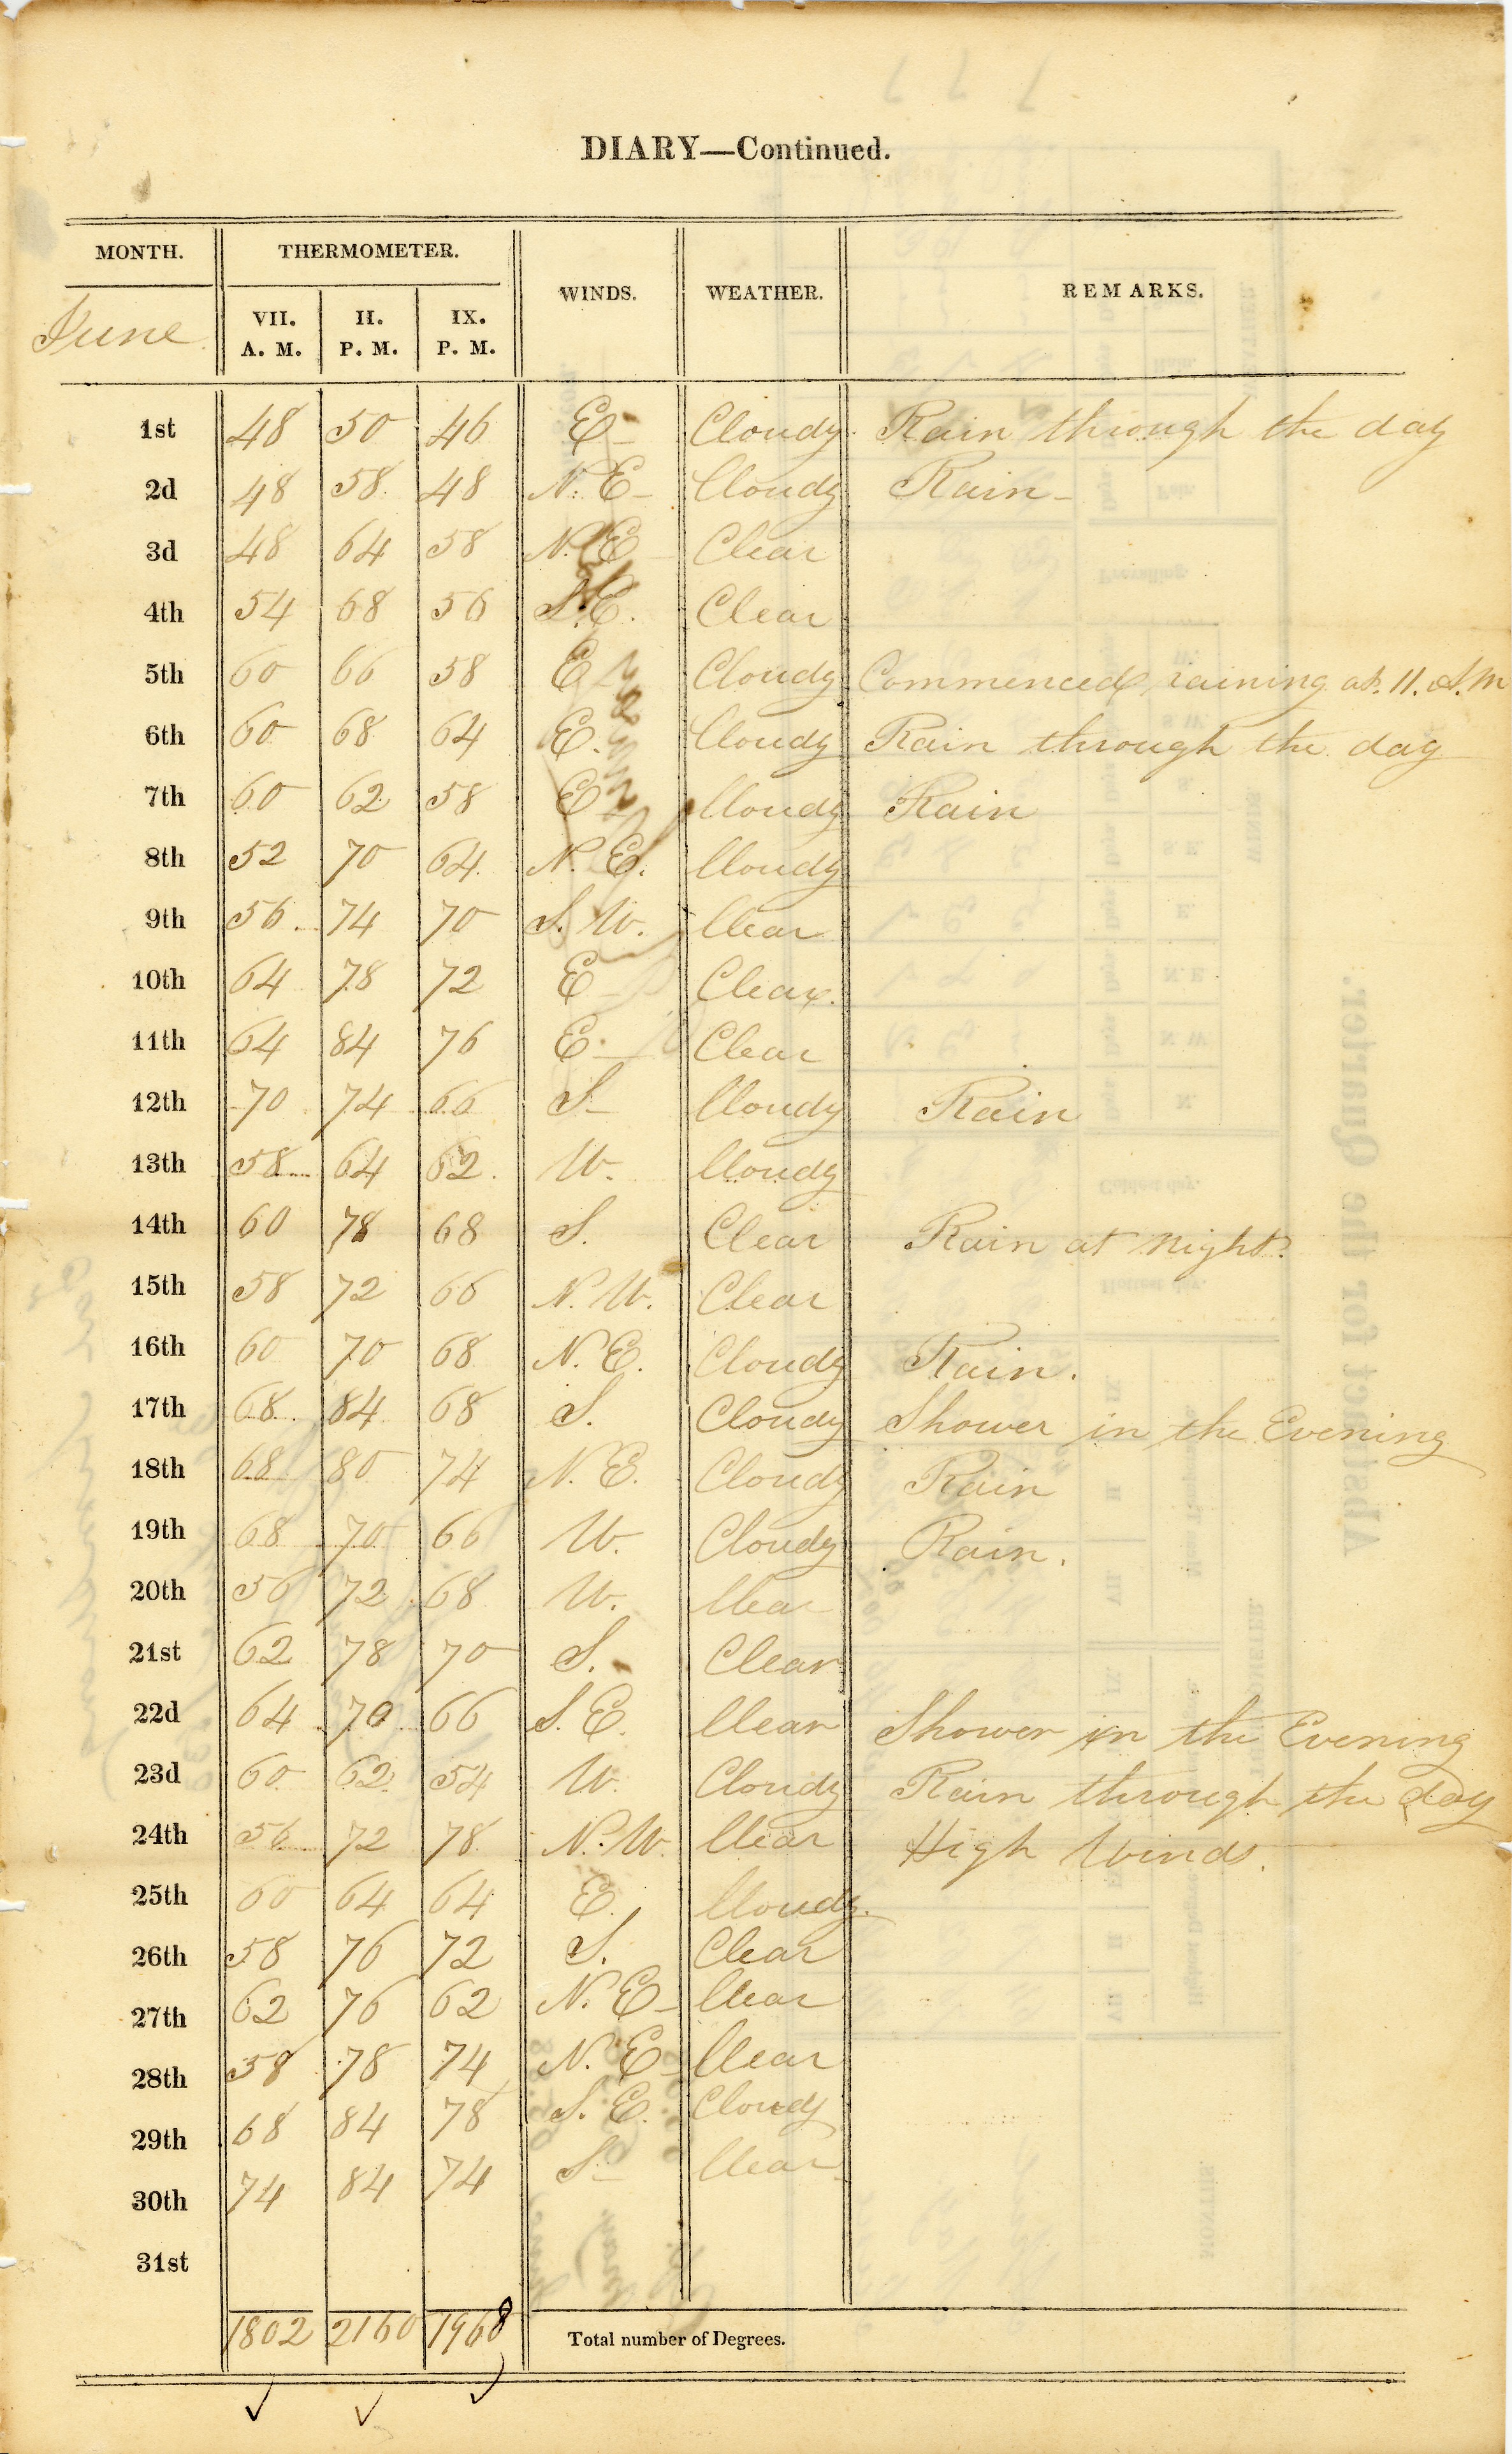 DIARY—Continued.
MONTH. THERMOMETER. WINDS. WEATHER. REMARKS.
June VII. A. M. II. P. M. IX. P. M.
1st 48 50 46 E Cloudy Rain through the day
2d 48 58 48 N. E Cloudy Rain
3d 48 64 58 N. E Clear
4th 54 68 56 S. E. Clear
5th 60 66 58 E Cloudy Commenced raining at. 11. A. M
6th 60 68 64 E. Cloudy Rain through the day
7th 60 62 58 E Cloudy Rain
8th 52 70 64 N. E. Cloudy
9th 56 74 70 S. W. Clear
10th 64 78 72 E Clear.
11th 64 84 76 E Clear
12th 70 74 66 S Cloudy Rain
13th 58 64 62 W. Cloudy
14th 60 78 68 S. Clear Rain at night.
15th 58 72 66 N. W. Clear
16th 60 70 68 N. E. Cloudy Rain.
17th 68 84 68 S. Cloudy Shower in the Evening
18th 68 80 74 N. E. Cloudy Rain
19th 68 70 66 W. Cloudy Rain.
20th 56 72 68 W. Clear
21st 62 78 70 S. Clear
22d 64 70 66 S. E. Clear Shower in the Evening
23d 60 62 54 W. Cloudy Rain through the day
24th 56 72 78 N. W. Clear High Winds.
25th 60 64 64 E. Cloudy.
26th 58 76 72 S. Clear
27th 62 76 62 N. E Clear
28th 58 78 74 N. E Clear
29th 68 84 78 S. E. Cloudy
30th 74 84 74 S Clear
31st
1802 2160 1968 Total number of Degrees.